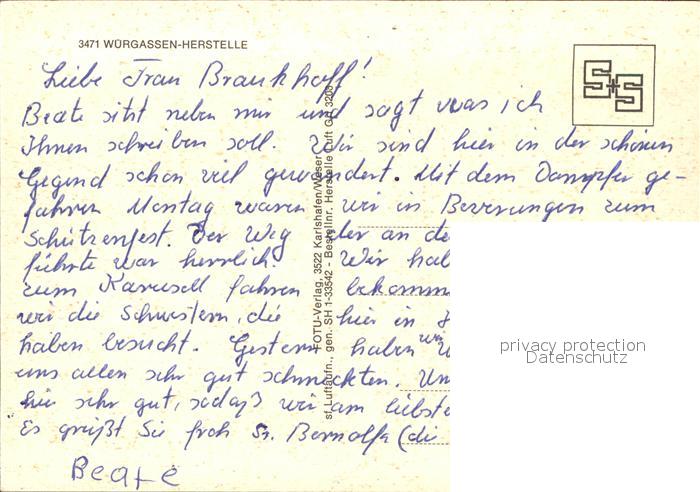 3471 WÜRGASSEN-HERSTELLE
S+S
Liebe Frau Brankhoff!
Beate sitzt neben mir und sagt was ich
Ihnen schreiben soll. Wir sind hier in der schönen
Gegend schon viel gewandert. Mit dem Dampfer ge-
fahren Montag waren wir in Beverungen zum
Schützenfest. Der Weg der an de
führte war herrlich. Wir hab
zum Karusell fahren bekomm
wir die Schwestern, die hier in
haben besucht. Gestern haben wir
uns allen sehr gut schmeckten. Un
hier sehr gut, sodaß wir am liebste
Es grüßt Sie froh Sr. (di
Beate
FOTU-Verlag, 3522 Karlshafen/Weser
sf Luftaufn., gen. SH 1-33542 - Bestellnr. Herstelle Luft GR 3203
privacy protection
Datenschutz